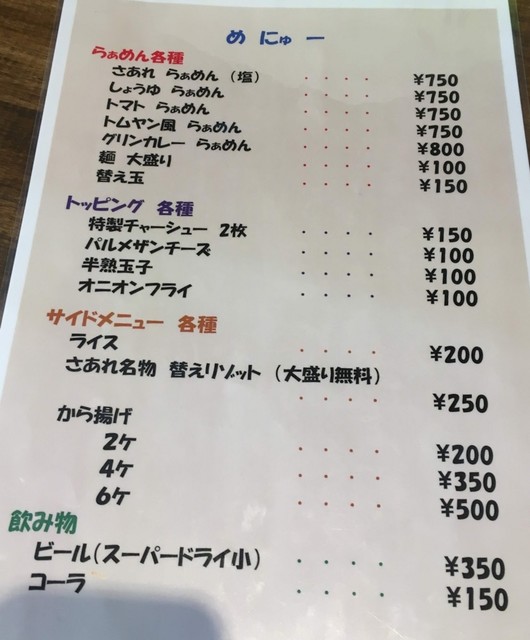 めにゅー
らぁめん各種
さあれ らぁめん（塩） ・・・・ ¥750
しょうゆ らぁめん ・・・・ ¥750
トマト らぁめん ・・・・ ¥750
トムヤン風 らぁめん ・・・・ ¥750
グリンカレー らぁめん ・・・・ ¥800
麺 大盛り ・・・・ ¥100
替え玉 ・・・・ ¥150
トッピング 各種
特製チャーシュー 2枚 ・・・・ ¥150
パルメザンチーズ ・・・・ ¥100
半熟玉子 ・・・・ ¥100
オニオンフライ ・・・・ ¥100
サイドメニュー 各種
ライス ・・・・ ¥200
さあれ名物 替えリゾット（大盛り無料）
・・・・ ¥250
から揚げ
2ケ ・・・・ ¥200
4ケ ・・・・ ¥350
6ケ ・・・・ ¥500
飲み物
ビール（スーパードライ小） ・・・・ ¥350
コーラ ・・・・ ¥150